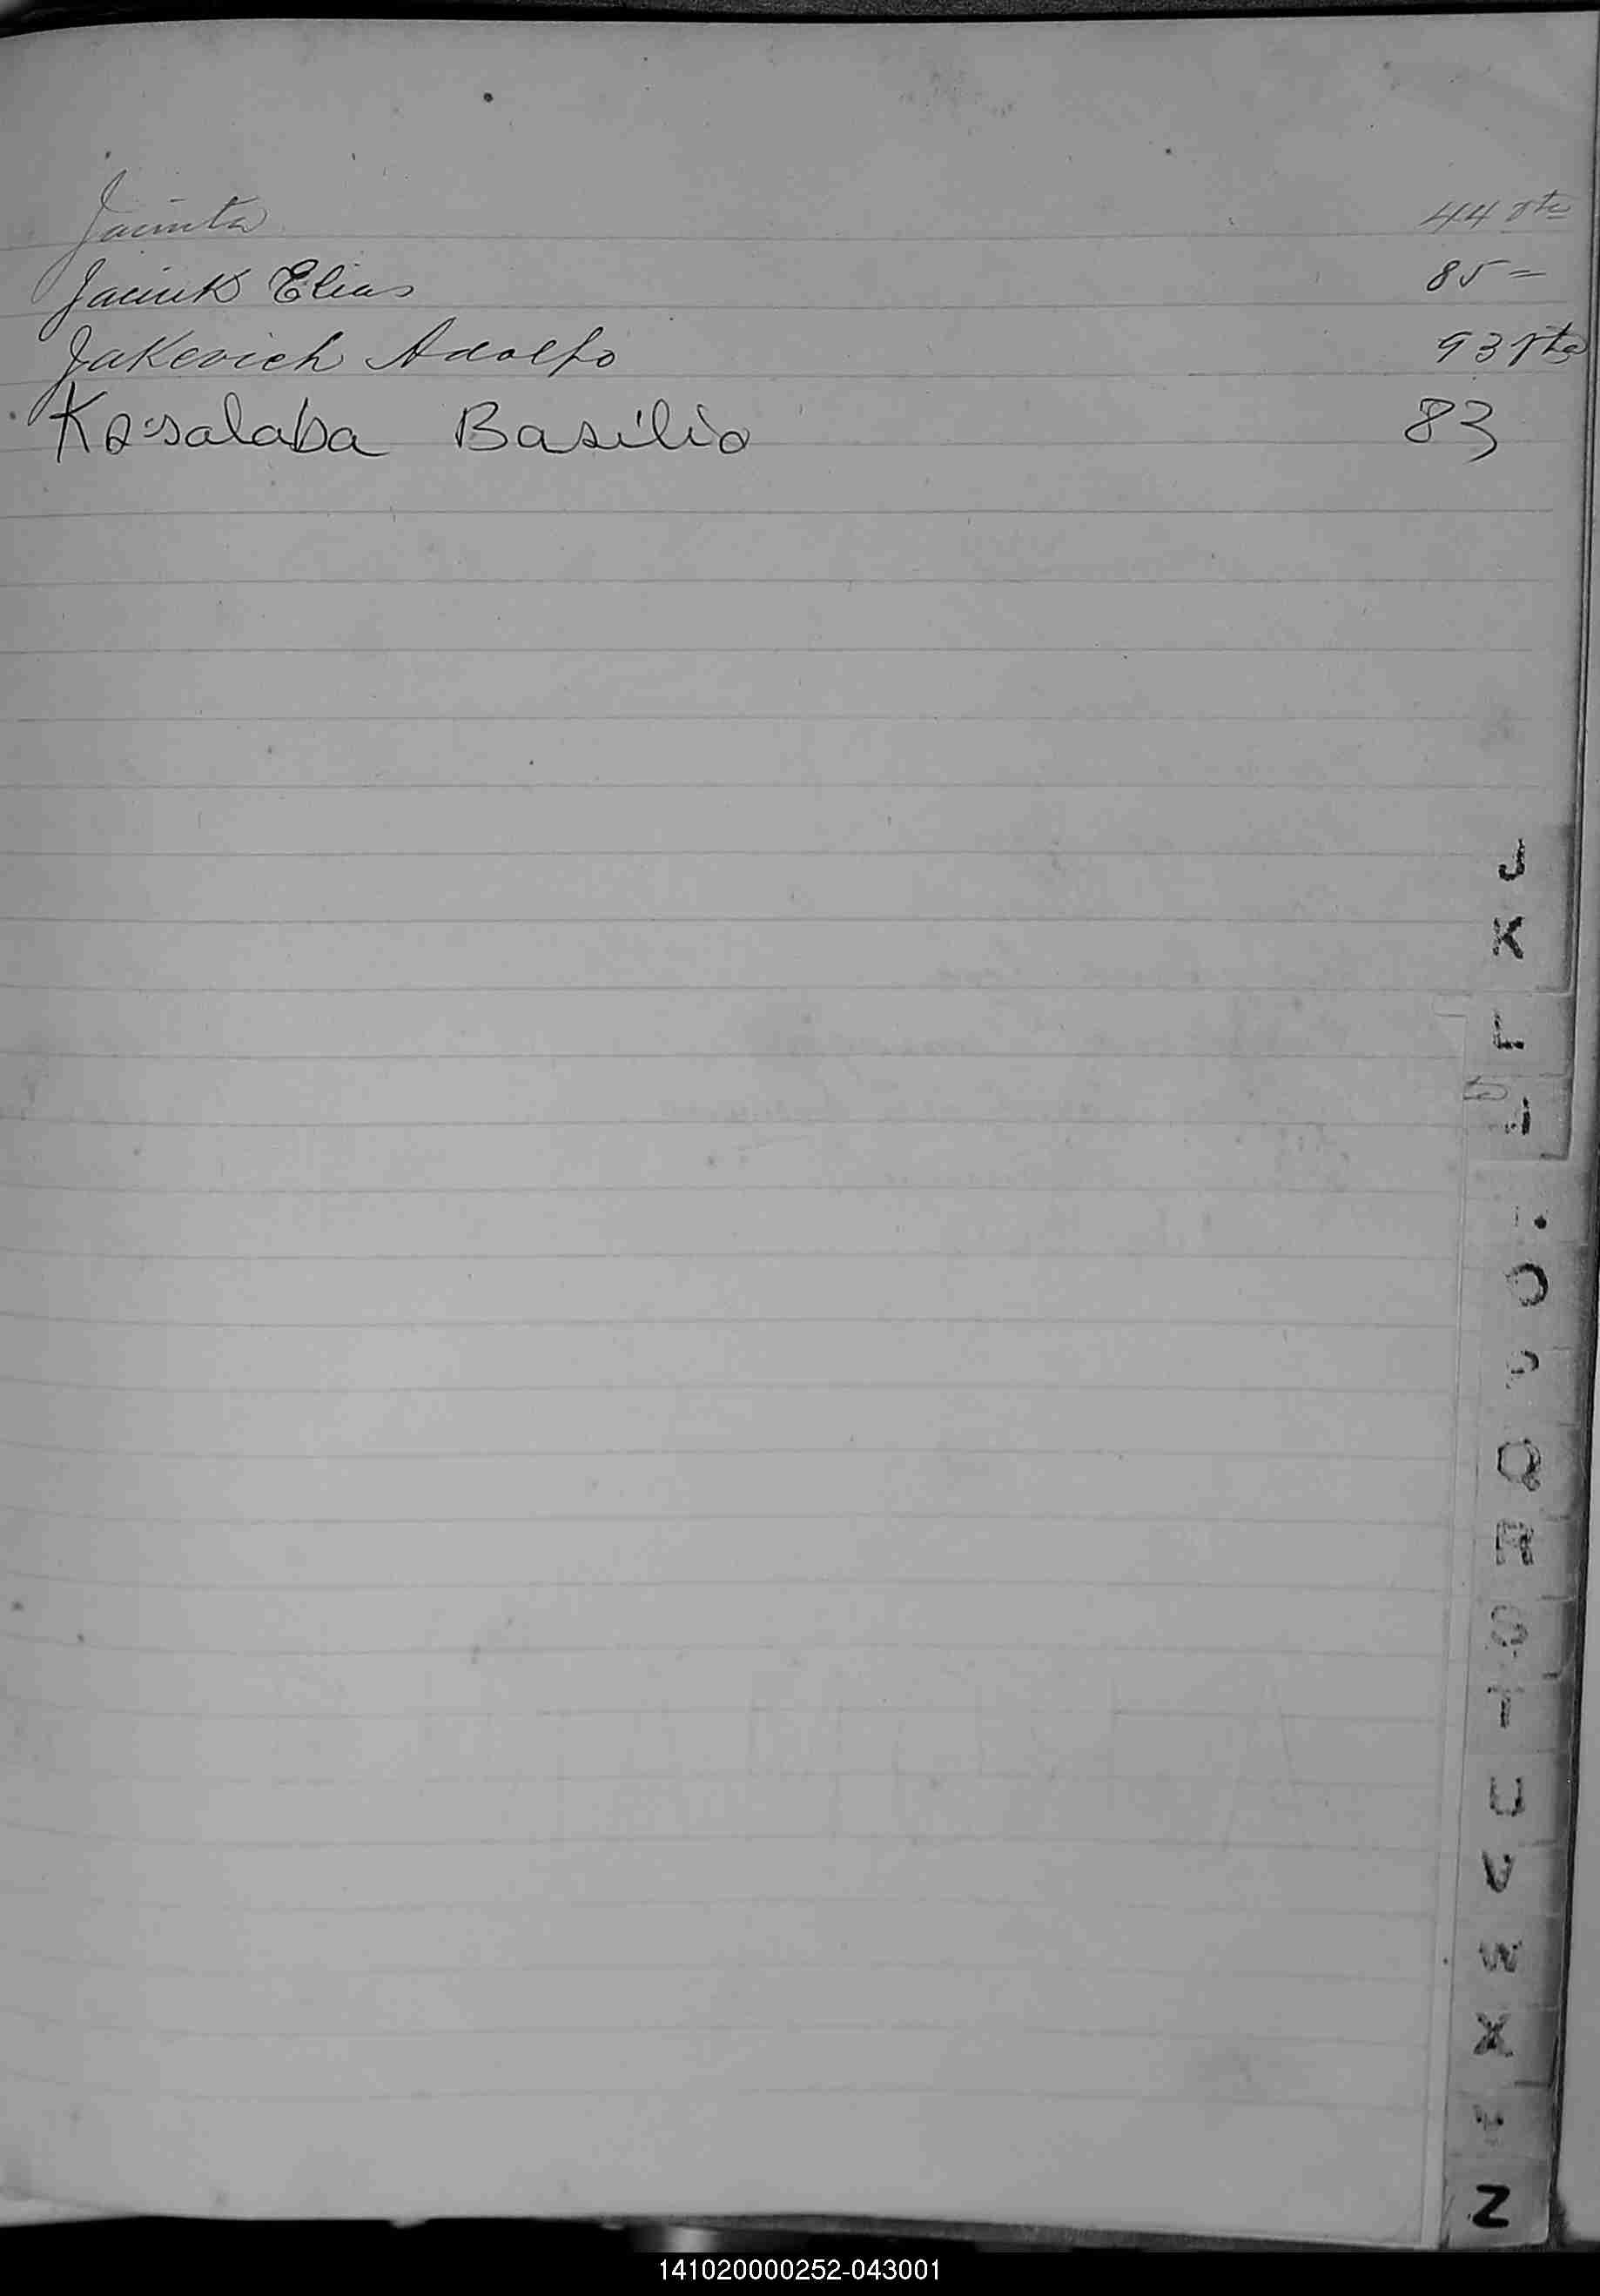 Jacinta 44 vta
Jaciuk Elias 85 =
Jakevich Adolfo 93 vta
Kosalaba Basilio 83
J
K
L
O
Q
R
U
V
W
X
Z
141020000252-043001